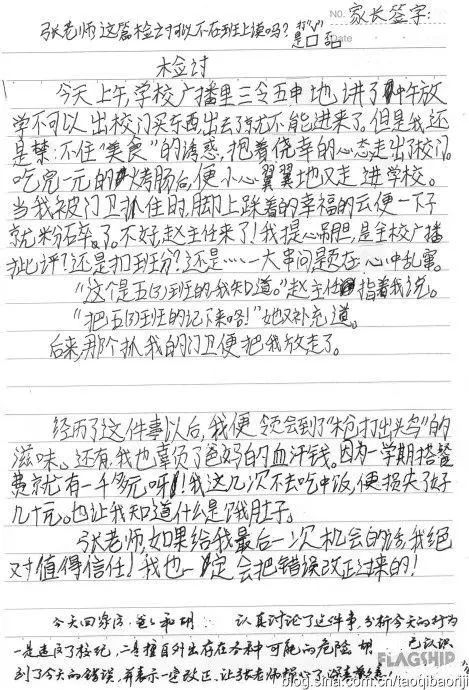 NO.
家长签字:
张老师这篇检讨可以不在班上读吗? 打"√"
是□ 否□
Date
检讨
今天上午,学校广播里三令五申地讲了中午放
学不可以出校门买东西出去了就不能进来了。但是我还
是禁不住"美食"的诱惑,抱着侥幸的心态走出了校门。
吃完一元的烤肠后,便小心翼翼地又走进学校。
当我被门卫抓住时,脚上踩着的幸福的云便一下子
就粉碎了。不好,赵主任来了!我提心吊胆,是全校广播
批评?还是扣班分?还是……一大串问题在心中乱窜。
"这个是五(3)班的,我知道。"赵主任指着我说。
"把五(3)班的记下来哈!"她又补充道。
后来,那个抓我的门卫便把我放走了。
经历了这件事以后,我便领会到了"枪打出头鸟"的
滋味。还有,我也辜负了爸妈的血汗钱。因为一学期搭餐
费就有一千多元呀!我这几次不去吃中饭,便损失了好
几十元。也让我知道什么是饿肚子。
张老师,如果给我最后一次机会的话,我绝
对值得信任!我也一定会把错误改正过来的!
今天回家后,爸爸和胡 认真讨论了这件事,分析今天的行为
一是违反了校纪,二是擅自外出存在各种可能的危险 胡 已认识
到了今天的错误,并表示一定改正。让张老师操心了,
FLAGSHIP
blog.sina.com.cn/taoqibaoriji